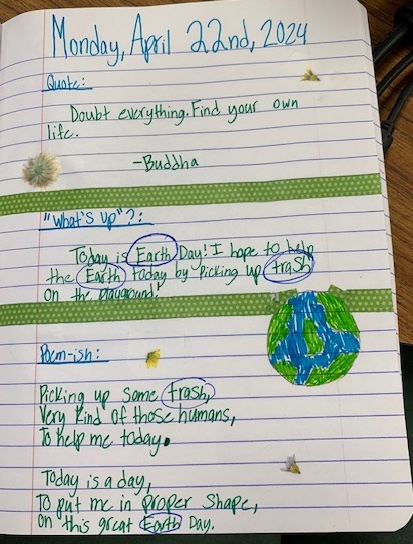 Monday, April 22nd, 2024
Quote:
Doubt everything. Find your own
life.
-Buddha
"What's up"?:
Today is Earth Day! I hope to help
the Earth today by picking up trash
on the playground!
Poem-ish:
Picking up some trash,
Very kind of those humans,
To help me today.
Today is a day,
To put me in proper shape,
on this great Earth Day.